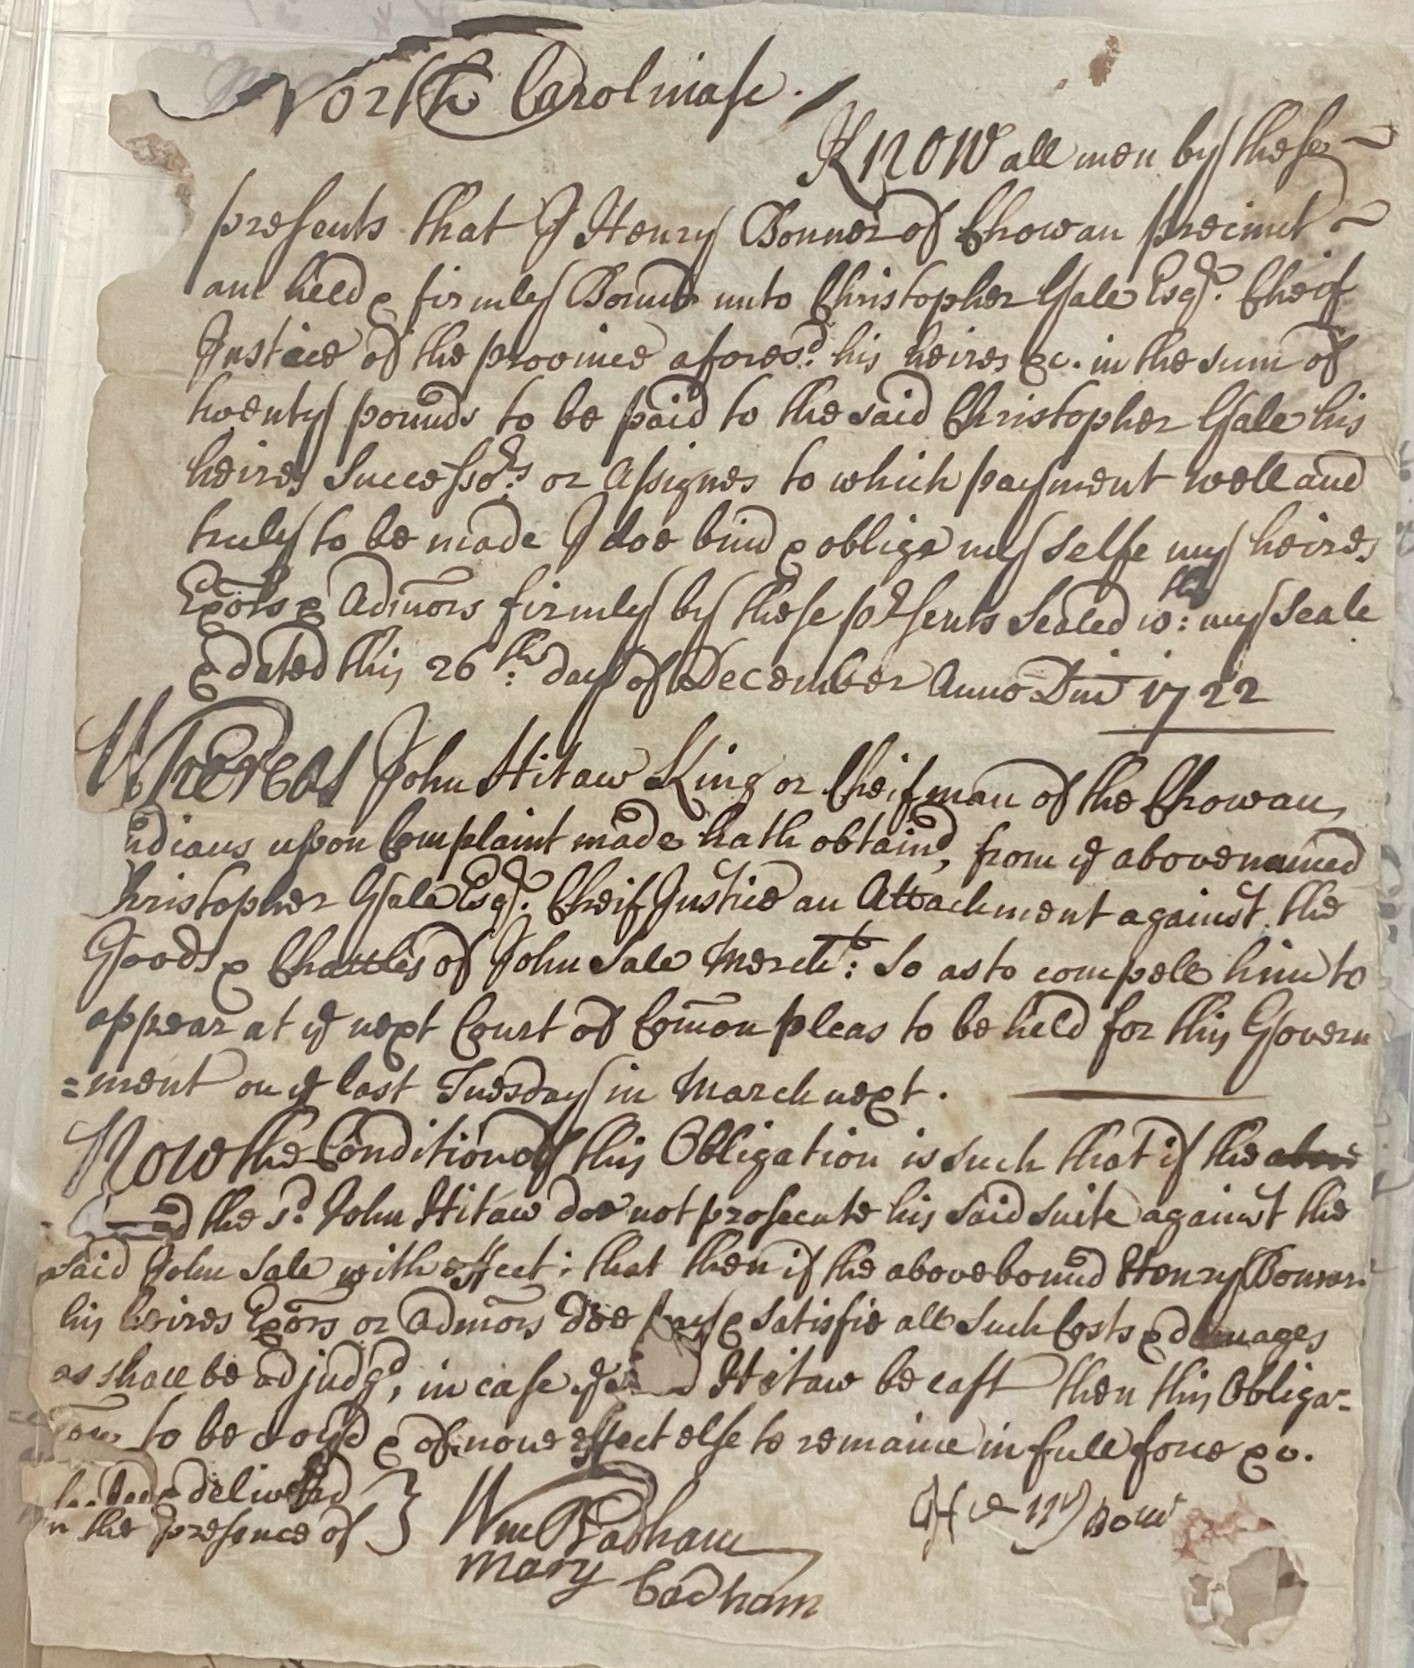 North Carolina sc.
KNOW all men by these
presents that I Henry Bonner of Chowan precinct
am held & firmly Bound unto Christopher Gale Esqr. Cheif
Justice of the province aforesd. his heires &c. in the sum of
twenty pounds to be paid to the said Christopher Gale his
heires Successors. or Assignes to which payment well and
truly to be made I doe bind & oblige my selfe my heires
Exōrs & Admōrs firmly by these prsents Sealed wth: my Seale
& dated this 26th: day of December Anno Dm̄ 1722
Whereas John Hitaw King or Cheif man of the Chowan
ndians upon Complaint made hath obtaind, from ye abovenamed
hristopher Gale Esqr. Cheif Justice an Attachment against the
Goods & Chattles of John Sale Mercht: So as to compell him to
appear at ye next Court of Com̄on pleas to be held for this Govern
=ment on ye last Tuesday in March next.
Now the Condition of this Obligation is such that if the above
the sd. John Hitaw doe not prosecute his said suite against the
said John Sale with effect: that then if the abovebound Henry Bonner
his heires Exōrs or Admōrs doe pay & satisfie all such Costs & damages
as shall be adjudgd, in case ye Hitaw be cast then this Obliga=
to be voyd & of none effect else to remaine in full force &c.
& delivered
in the presence of } Wm Badham
Mary Badham